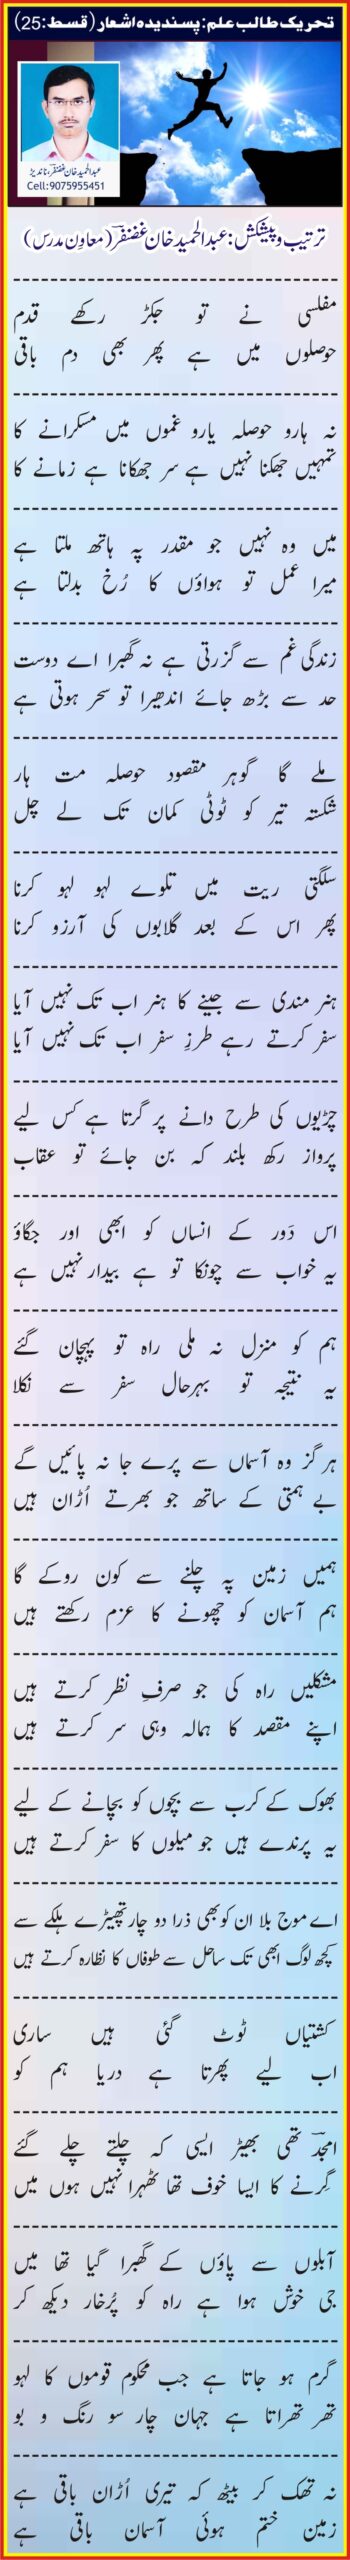 تحریک طالب علم: پسندیدہ اشعار (قسط:25)
عبدالحمید خان غضنفر، ناندیڑ
Cell:9075955451
ترتیب و پیشکش: عبدالحمید خان غضنفرؔ (معاون مدرس)
مفلسی نے تو جکڑ رکھے قدم
حوصلوں میں ہے پھر بھی دم باقی
نہ ہارو حوصلہ یارو غموں میں مسکرانے کا
تمہیں جھکنا نہیں ہے سر جھکانا ہے زمانے کا
میں وہ نہیں جو مقدر پہ ہاتھ ملتا ہے
میرا عمل تو ہواؤں کا رُخ بدلتا ہے
زندگی غم سے گزرتی ہے نہ گھبرا اے دوست
حد سے بڑھ جائے اندھیرا تو سحر ہوتی ہے
ملے گا گوہر مقصود حوصلہ مت ہار
شکستہ تیر کو ٹوٹی کمان تک لے چل
سلگتی ریت میں تلوے لہو لہو کرنا
پھر اس کے بعد گلابوں کی آرزو کرنا
ہنر مندی سے جینے کا ہنر اب تک نہیں آیا
سفر کرتے رہے طرزِ سفر اب تک نہیں آیا
چڑیوں کی طرح دانے پر گرتا ہے کس لیے
پرواز رکھ بلند کہ بن جائے تو عقاب
اس دَور کے انساں کو ابھی اور جگاؤ
یہ خواب سے چونکا تو ہے بیدار نہیں ہے
ہم کو منزل نہ ملی راہ تو پہچان گئے
یہ نتیجہ تو بہرحال سفر سے نکلا
ہر گز وہ آسماں سے پرے جا نہ پائیں گے
بے ہمتی کے ساتھ جو بھرتے اُڑان ہیں
ہمیں زمین پہ چلنے سے کون روکے گا
ہم آسمان کو چھونے کا عزم رکھتے ہیں
مشکلیں راہ کی جو صرفِ نظر کرتے ہیں
اپنے مقصد کا ہمالہ وہی سر کرتے ہیں
بھوک کے کرب سے بچوں کو بچانے کے لیے
یہ پرندے ہیں جو میلوں کا سفر کرتے ہیں
اے موج بلا ان کو بھی ذرا دو چار تھپیڑے ہلکے سے
کچھ لوگ ابھی تک ساحل سے طوفاں کا نظارہ کرتے ہیں
کشتیاں ٹوٹ گئی ہیں ساری
اب لیے پھرتا ہے دریا ہم کو
امجدؔ تھی بھیڑ ایسی کہ چلتے چلے گئے
گِرنے کا ایسا خوف تھا ٹھہرا نہیں ہوں میں
آبلوں سے پاؤں کے گھبرا گیا تھا میں
جی خوش ہوا ہے راہ کو پُرخار دیکھ کر
گرم ہو جاتا ہے جب محکوم قوموں کا لہو
تھر تھراتا ہے جہان چار سو رنگ و بو
نہ تھک کر بیٹھ کہ تیری اُڑان باقی ہے
زمین ختم ہوئی آسمان باقی ہے